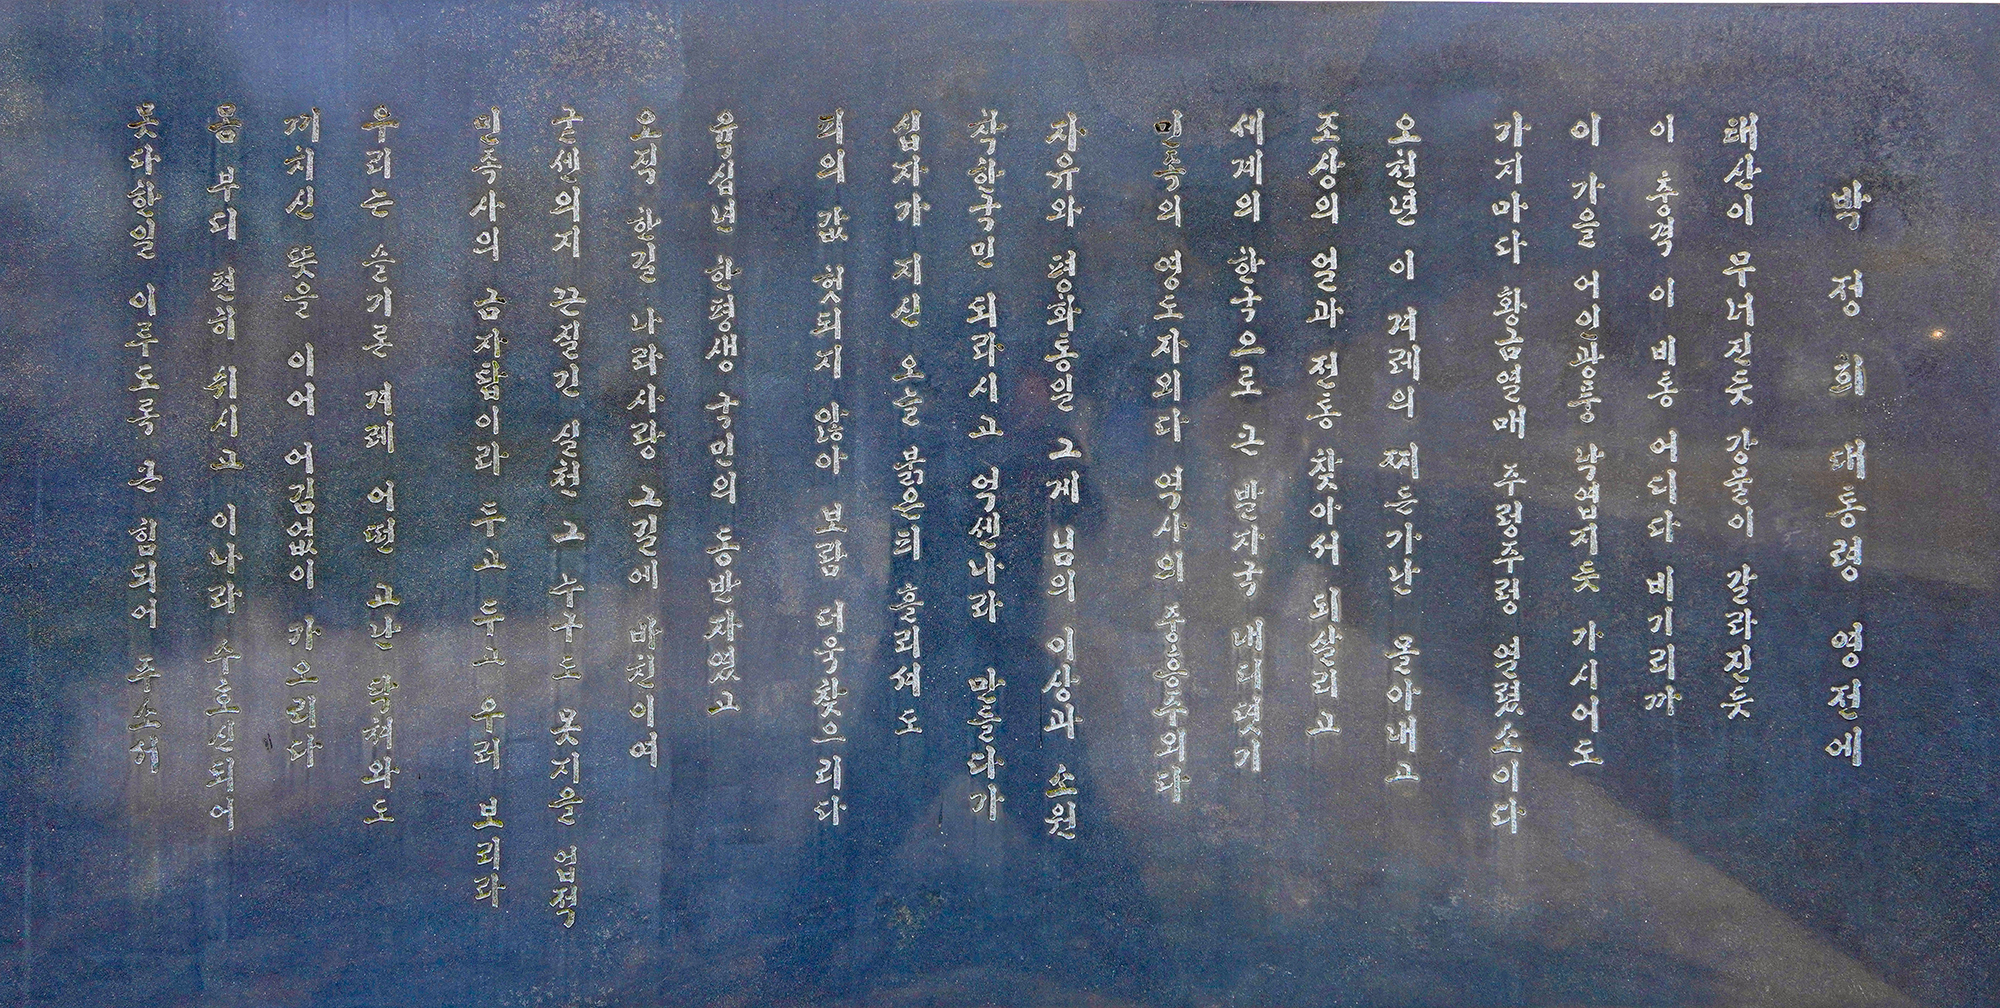 박 정 희 대통령 영전에
태산이 무너진듯 강물이 갈라진듯
이 충격 이 비통 어디다 비기리까
이 가을 어인광풍 낙엽지듯 가시어도
가지마다 황금열매 주렁주렁 열렸소이다
오천년 이 겨레의 찌든가난 몰아내고
조상의 얼과 전통 찾아서 되살리고
세계의 한국으로 큰 발자국 내디뎟기
민족의 영도자외다 역사의 중흥주외다
자유와 평화통일 그게 님의 이상과 소원
착한국민 되라시고 억센나라 만들다가
십자가 지신 오늘 붉은피 흘리셔도
피의 값 헛되지 않아 보람 더욱찾으리다
육십년 한평생 국민의 동반자였고
오직 한길 나라사랑 그길에 바친이여
굳센의지 끈질긴 실천 그 누구도 못지을 업적
민족사의 금자탑이라 두고 두고 우러 보리라
우리는 슬기론 겨레 어떤 고난 닥쳐와도
끼치신 뜻을 이어 어김없이 가오리다
몸 부디 편히 쉬시고 이나라 수호신되어
못다한일 이루도록 큰 힘되어 주소서